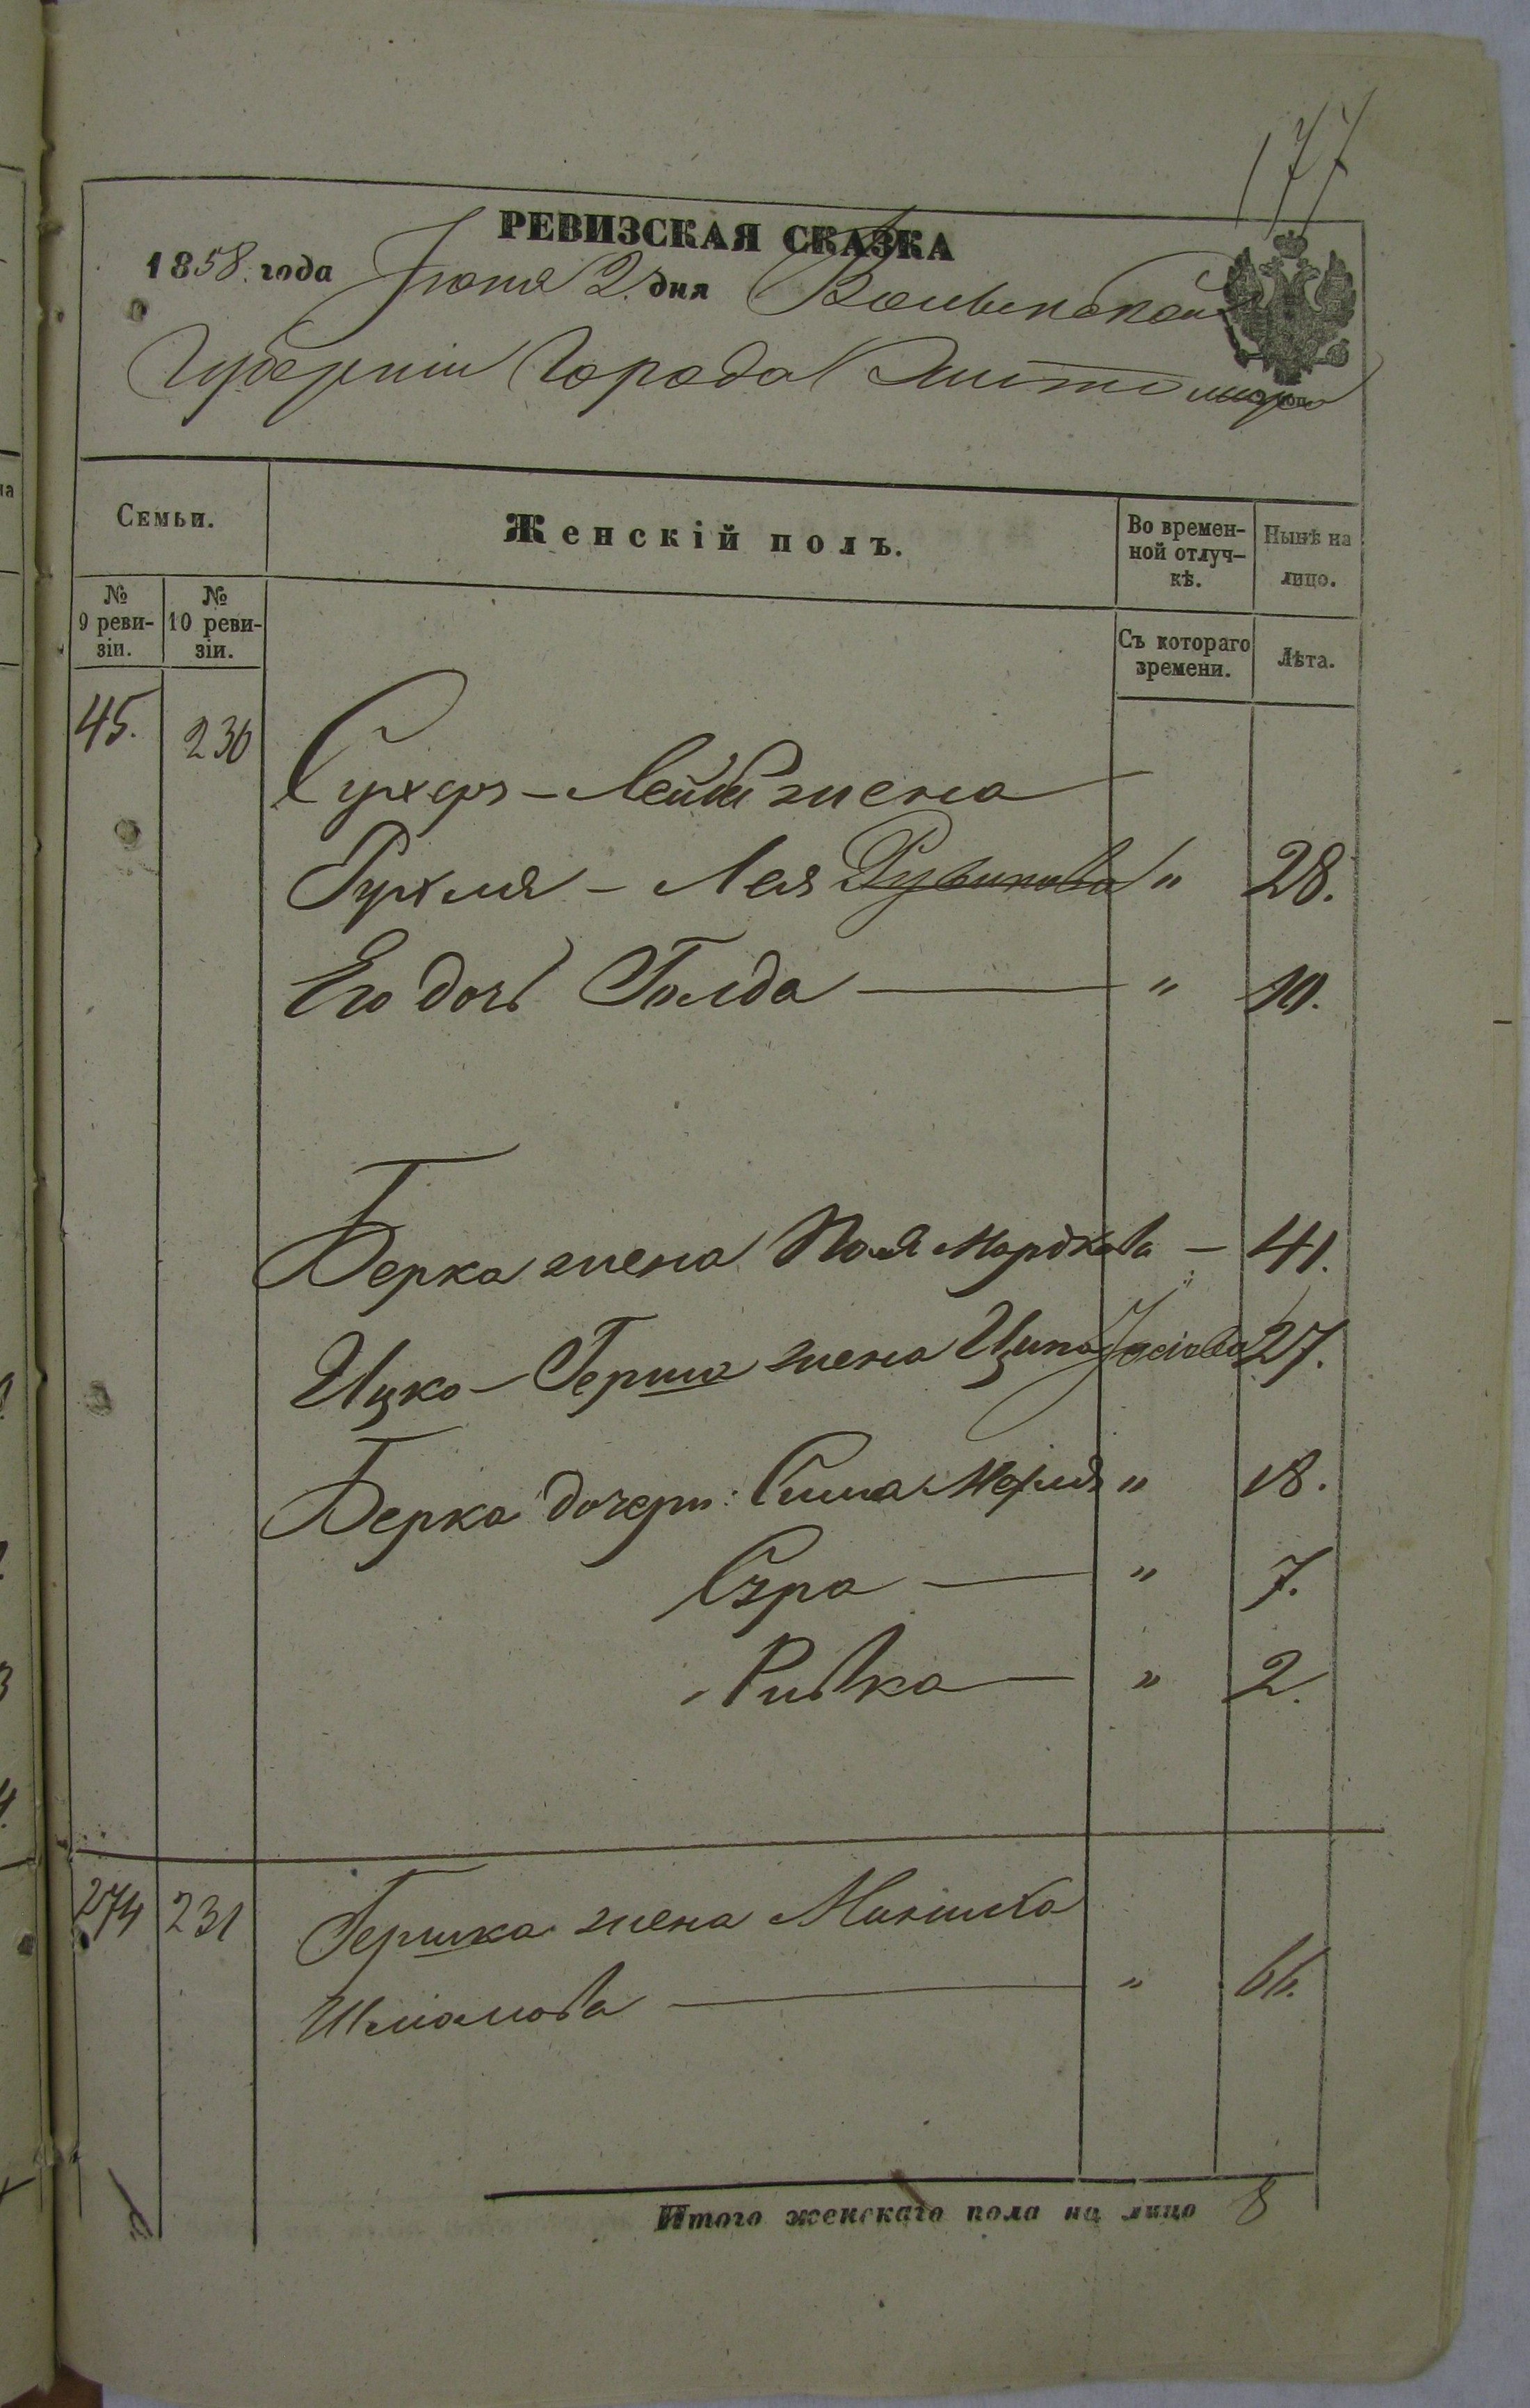 177
РЕВИЗСКАЯ СКАЗКА
1858. года Іюня 2. дня Волынской
Губерніи Города Житомира
Семьи.
Женскій полъ.
Во времен-
ной отлуч-
кѣ.
Нынѣ на
лицо.
№
9 реви-
зіи.
№
10 реви-
зіи.
Съ котораго
времени.
Лѣта.
45. 230
Сухеръ-Лейбы жена
Рухля - Лея Рувинова " 28.
Его дочь Голда " 10.
Берка жена Мордкова - 41.
Ицко-Герша жена Ципа Іосіова 27.
Берка дочери: Сима " 18.
Сура " 7.
Ривка " 2.
274 231 Гершка жена
Шліомова " 66.
Итого женскаго пола на лицо 8